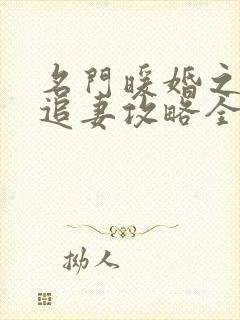 名門暖婚之
追妻攻略全
拗人